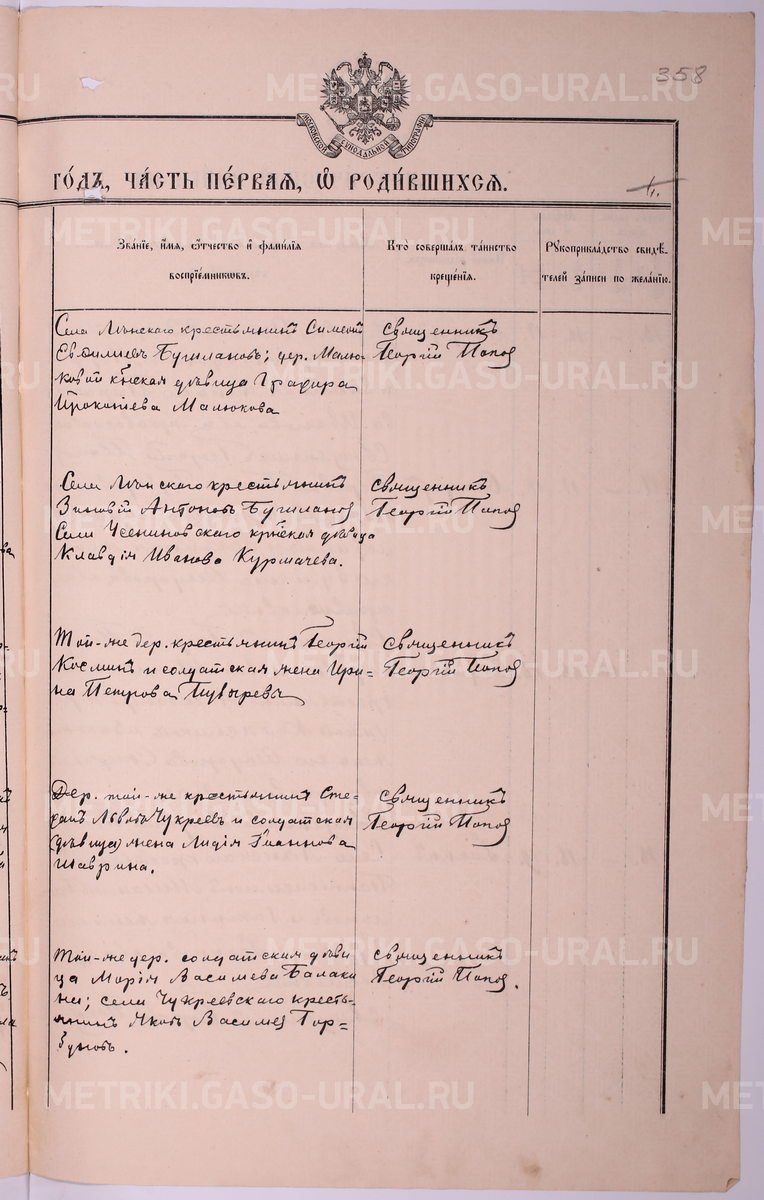 358
МОСКОВСКОЙ СѴНОДАЛЬНОЙ ТИПОГРАФІИ
ГОДЪ, ЧАСТЬ ПЕРВАЯ, Ѿ РОДИВШИХСЯ.
Званіе, имя, отчество и фамилія
воспріемниковъ.
Кто совершалъ таинство
крещенія.
Рукоприкладство свидѣ-
телей записи по желанію.
Села крестьянинъ Симеонъ
Евѳиміевъ Бушлановъ; дер. Малю-
ковой кр҃нская дѣвица Глафира
Прокопіева Малюкова
Священникъ
Георгій Попов
Села крестьянинъ
Зиновій Антоновъ Бушланов
Села кр҃нская дѣвица
Клавдія Иванова Курмачева.
Священникъ
Георгій Попов
Той-же дер. крестьянинъ Георгій
Косминъ и солдатская жена Ири-
на Петрова Пувыревы
Священникъ
Георгій Попов
Дер. той-же крестьянинъ Сте-
фанъ Львовъ Чукреевъ и солдатская
(дѣвица) жена Лидія Іоаннова
Шаврина.
Священникъ
Георгій Попов
Той-же дер. солдатская дѣви-
ца Марія Васильева Балаки-
на; села Чукреевскаго кресть-
янинъ Яковъ Васильев Гор-
буновъ.
Священникъ
Георгій Попов.
METRIKI.GASO-URAL.RU